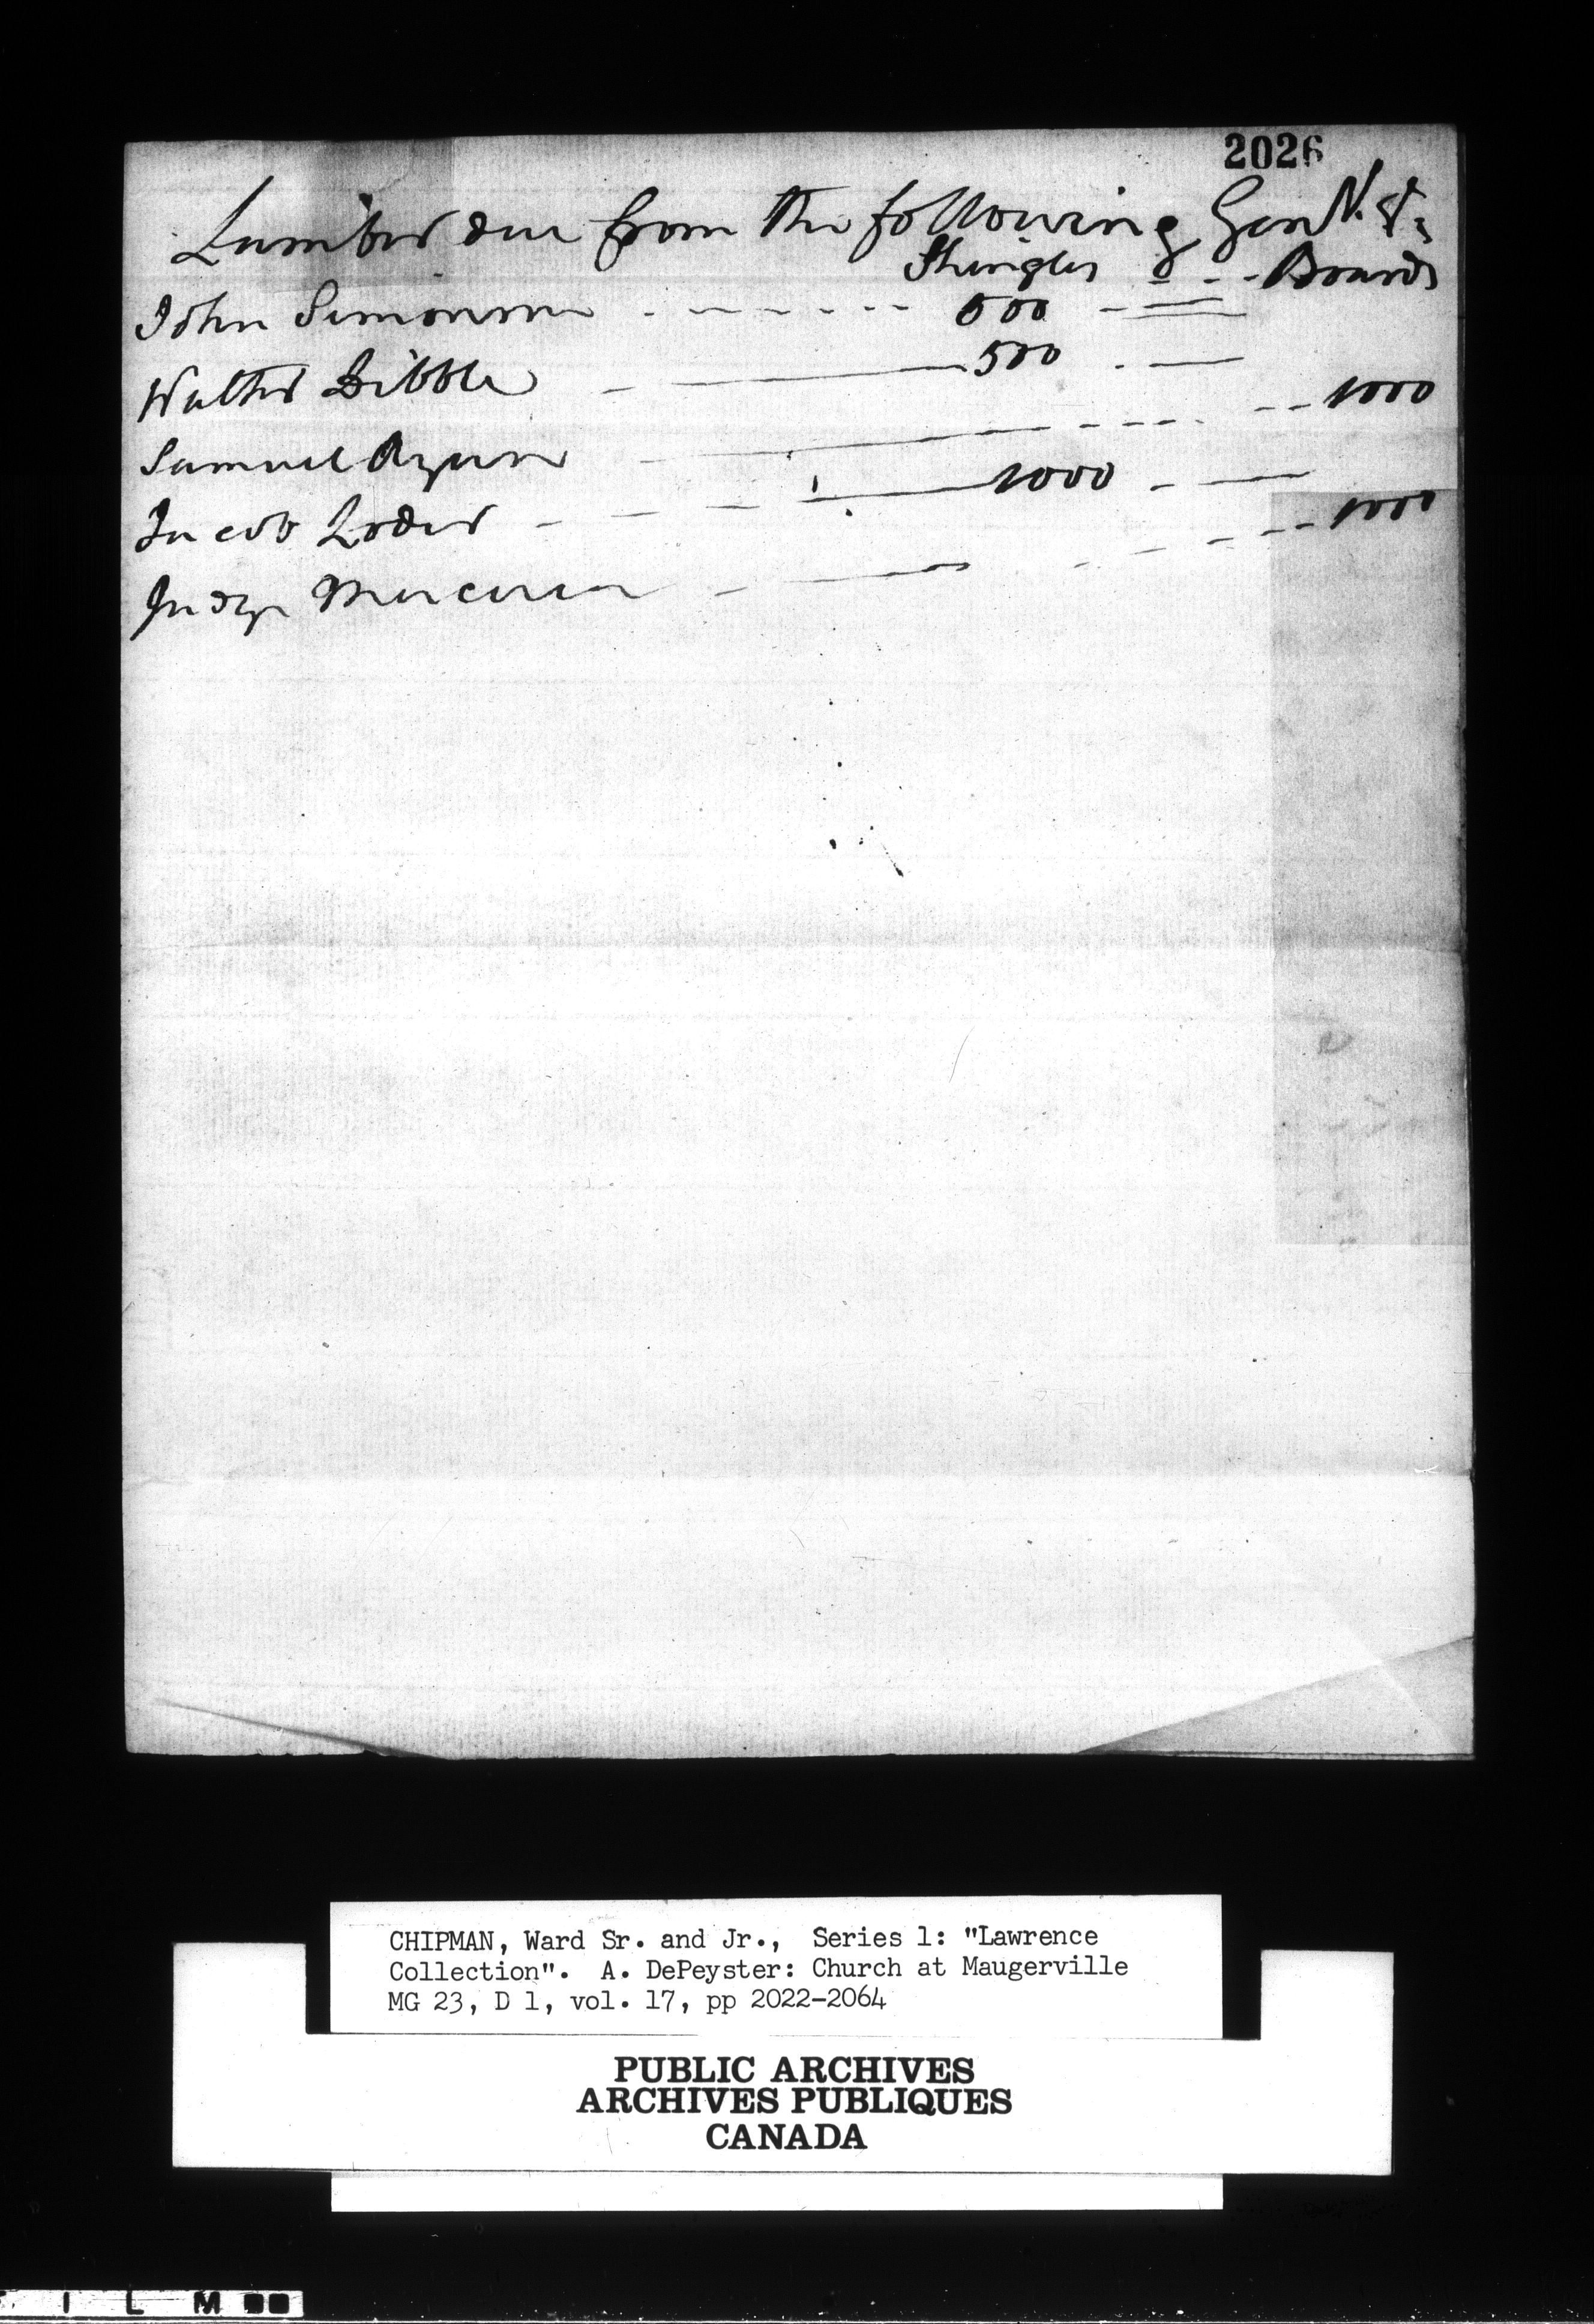 2026
Lumber due from the following Gen
Shingles - - - Boards
John Simonson - - - - - - - 500 - =
Walter Dibble - — 500 - —
Samuel Ryan - — - - - - - - 1000
Jacob Loder - — - — 1000 - —
Judge - — - - - - - 1000
CHIPMAN, Ward Sr. and Jr., Series 1: "Lawrence
Collection". A. DePeyster: Church at Maugerville
MG 23, D 1, vol. 17, pp 2022-2064
PUBLIC ARCHIVES
ARCHIVES PUBLIQUES
CANADA
I L M